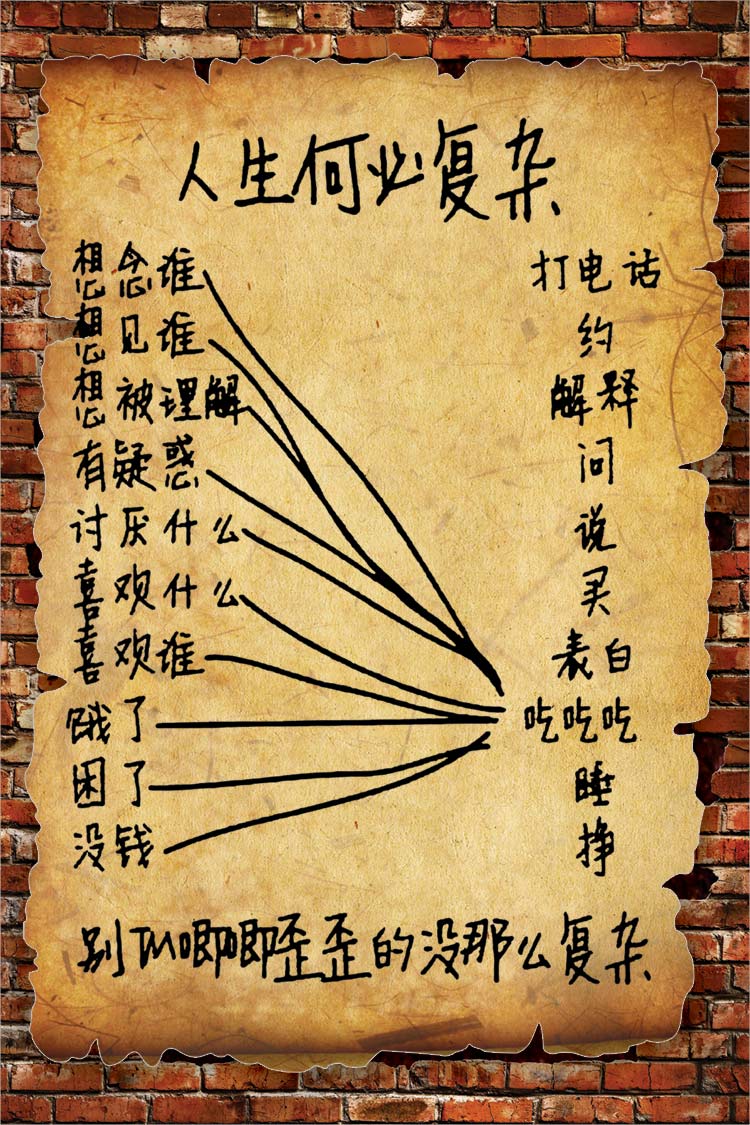 人生何必复杂
想念谁 打电话
想见谁 约
想被理解 解释
有疑惑 问
讨厌什么 说
喜欢什么 买
喜欢谁 表白
饿了 吃吃吃
困了 睡
没钱 挣
别TM唧唧歪歪的没那么复杂